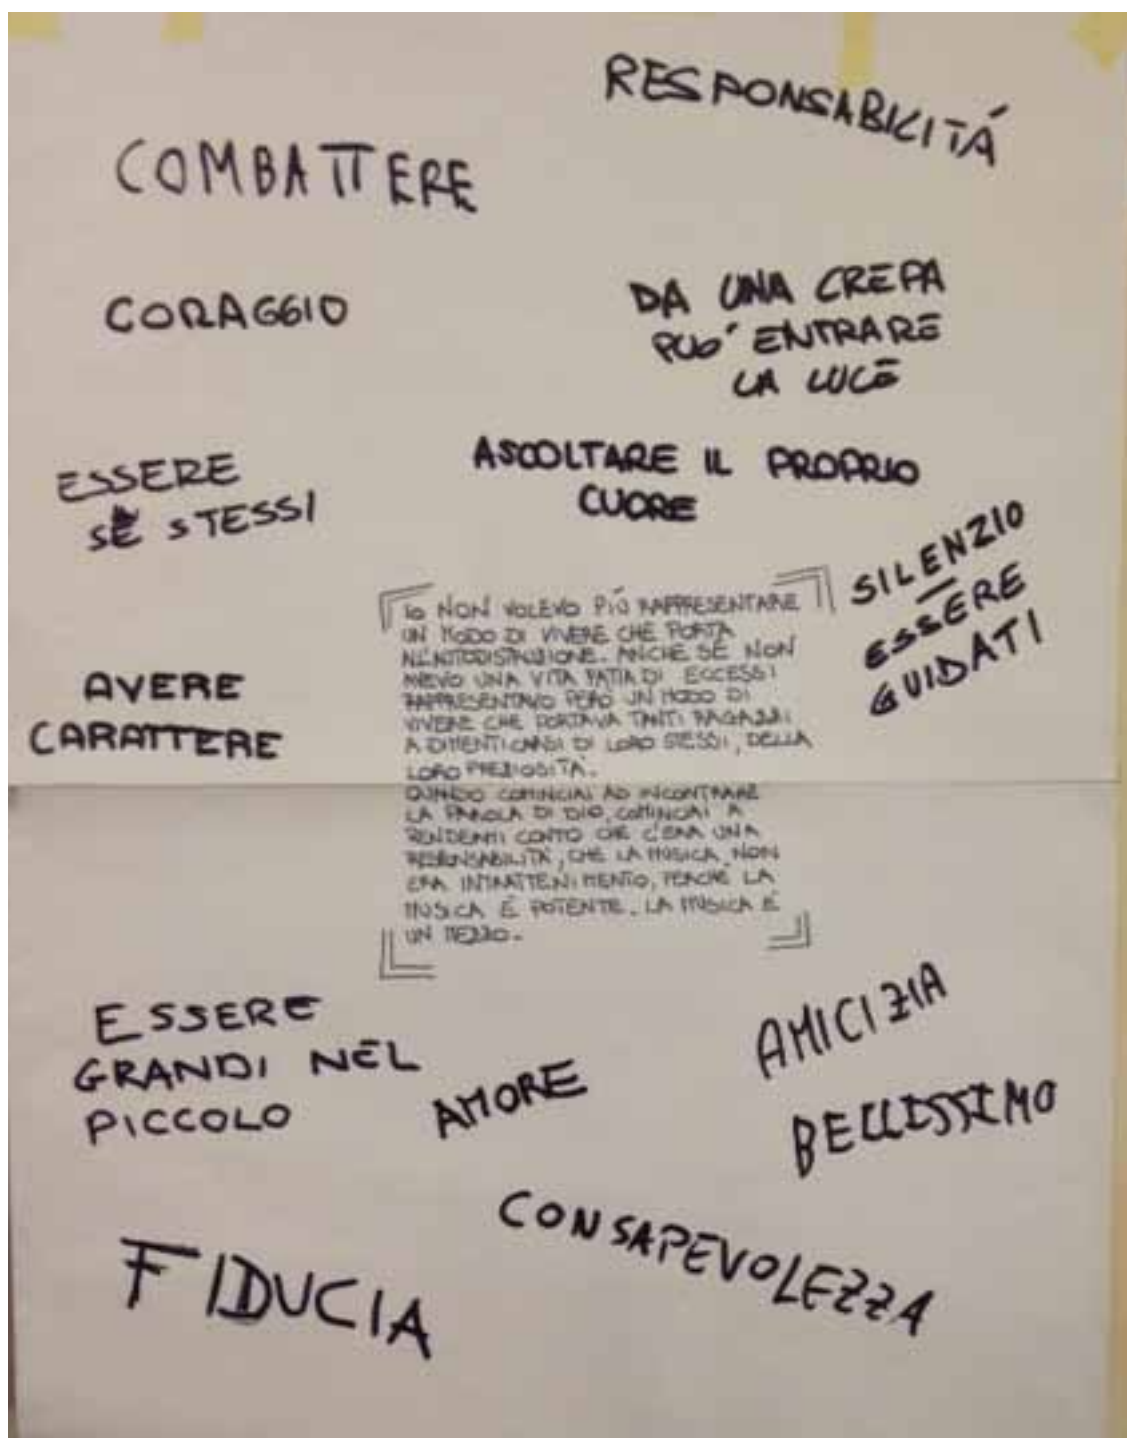 RESPONSABILITÁ
COMBATTERE
CORAGGIO
DA UNA CREPA
PUO' ENTRARE
LA LUCE
ASCOLTARE IL PROPRIO
CUORE
ESSERE
SÈ STESSI
SILENZIO
ESSERE
GUIDATI
IO NON VOLEVO PIÚ RAPPRESENTARE
UN MODO DI VIVERE CHE PORTA
ALL'AUTODISTRUZIONE. ANCHE SE NON
AVEVO UNA VITA FATTA DI ECCESSI
RAPPRESENTAVO PERÓ UN MODO DI
VIVERE CHE PORTAVA TANTI RAGAZZI
A DIMENTICARSI DI LORO STESSI, DELLA
LORO PREZIOSITÀ.
QUANDO COMINCIAI AD INCONTRARE
LA PAROLA DI DIO, COMINCIAI A
RENDERMI CONTO CHE C'ERA UNA
RESPONSABILITÀ, CHE LA MUSICA NON
ERA INTRATTENIMENTO, PERCHÉ LA
MUSICA É POTENTE. LA MUSICA É
UN MEZZO.
AVERE
CARATTERE
ESSERE
GRANDI NEL
PICCOLO
AMORE
AMICIZIA
BELLISSIMO
CONSAPEVOLEZZA
FIDUCIA